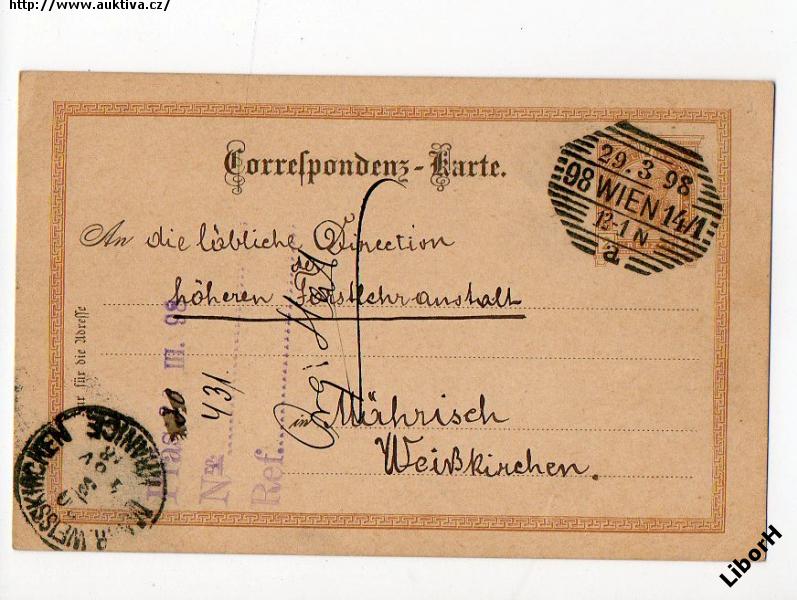 http://www.auktiva.cz/
Correspondenz-Karte.
29.3 98
98 WIEN 14/1
12-1 N
a
An die löbliche Direction
der
höheren Forstlehranstalt
in Mährisch
Weißkirchen.
ur für die Adresse
Präs. III. 98
No 431
Ref.
M.-WEISSKIRCHEN
HRANICE
LiborH